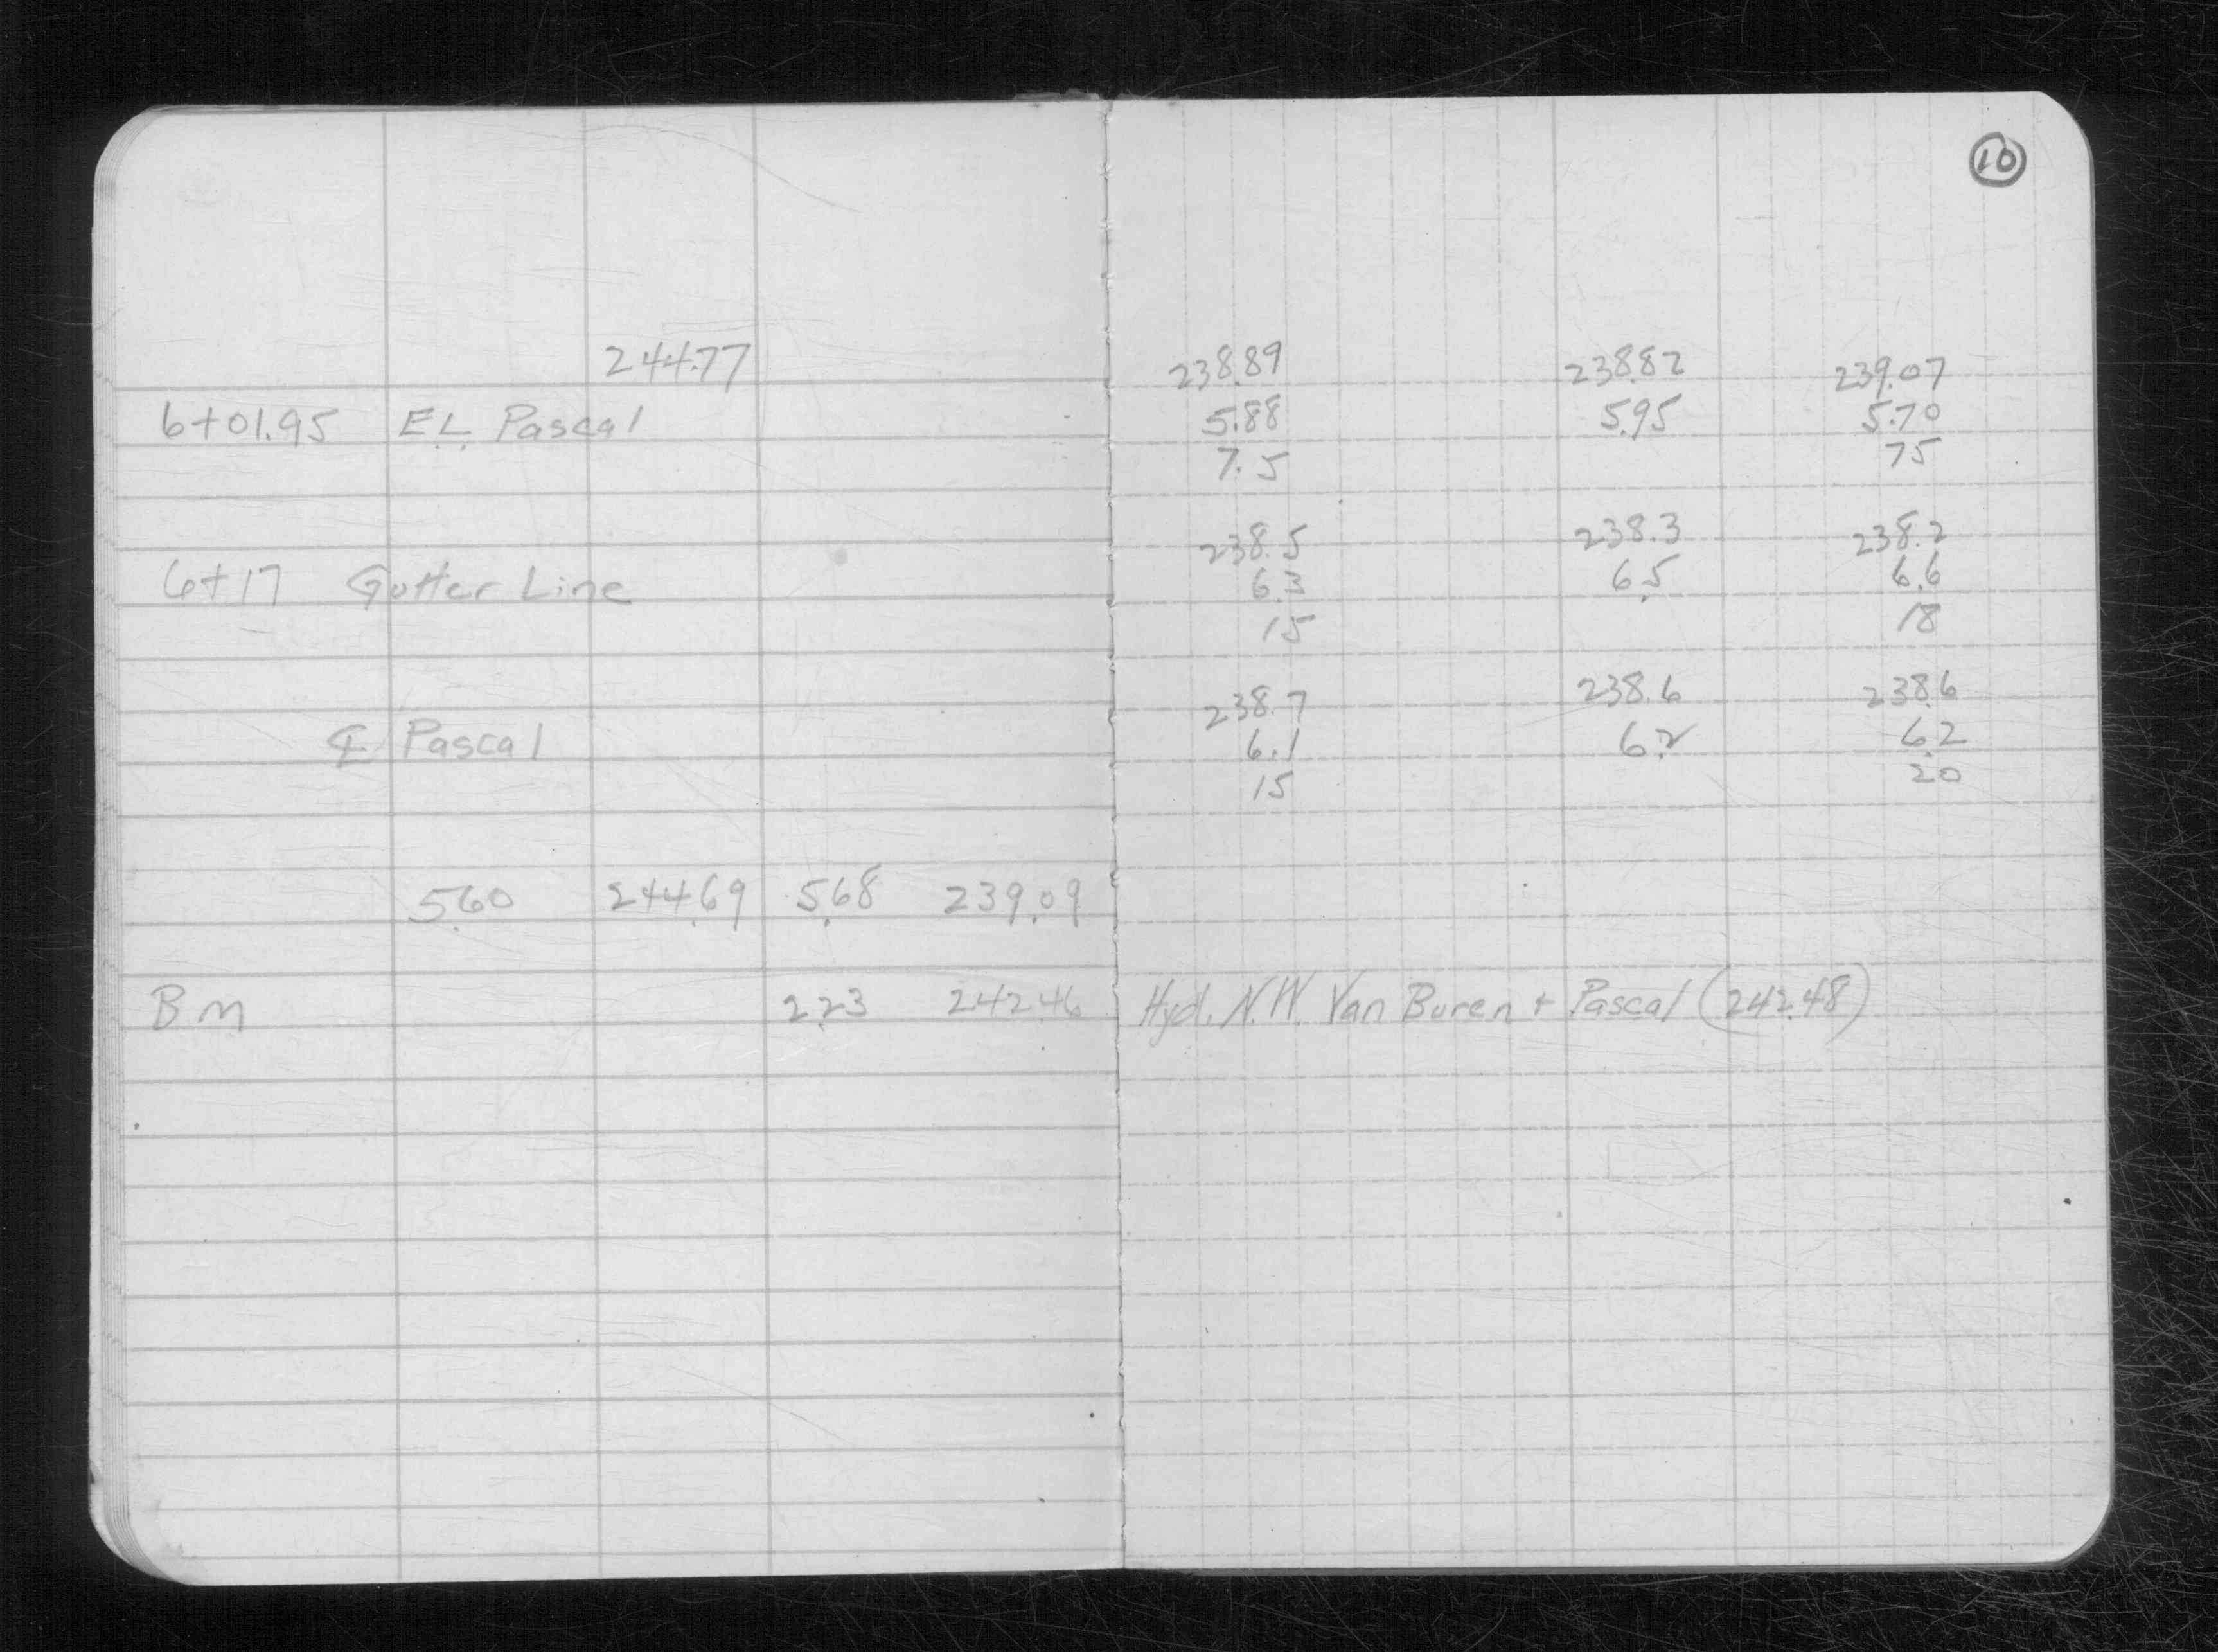 10
244.77 238.89 238.82 239.07
6+01.95 EL Pascal 5.88 5.95 5.70
7.5 75
238.5 238.3 238.2
6+17 Gutter Line 6.3 6.5 6.6
15 18
238.7 238.6 238.6
℄ Pascal 6.1 6.2 6.2
15 20
5.60 244.69 5.68 239.09
BM 2.23 242.46 Hyd. N.W. Van Buren + Pascal (242.48)